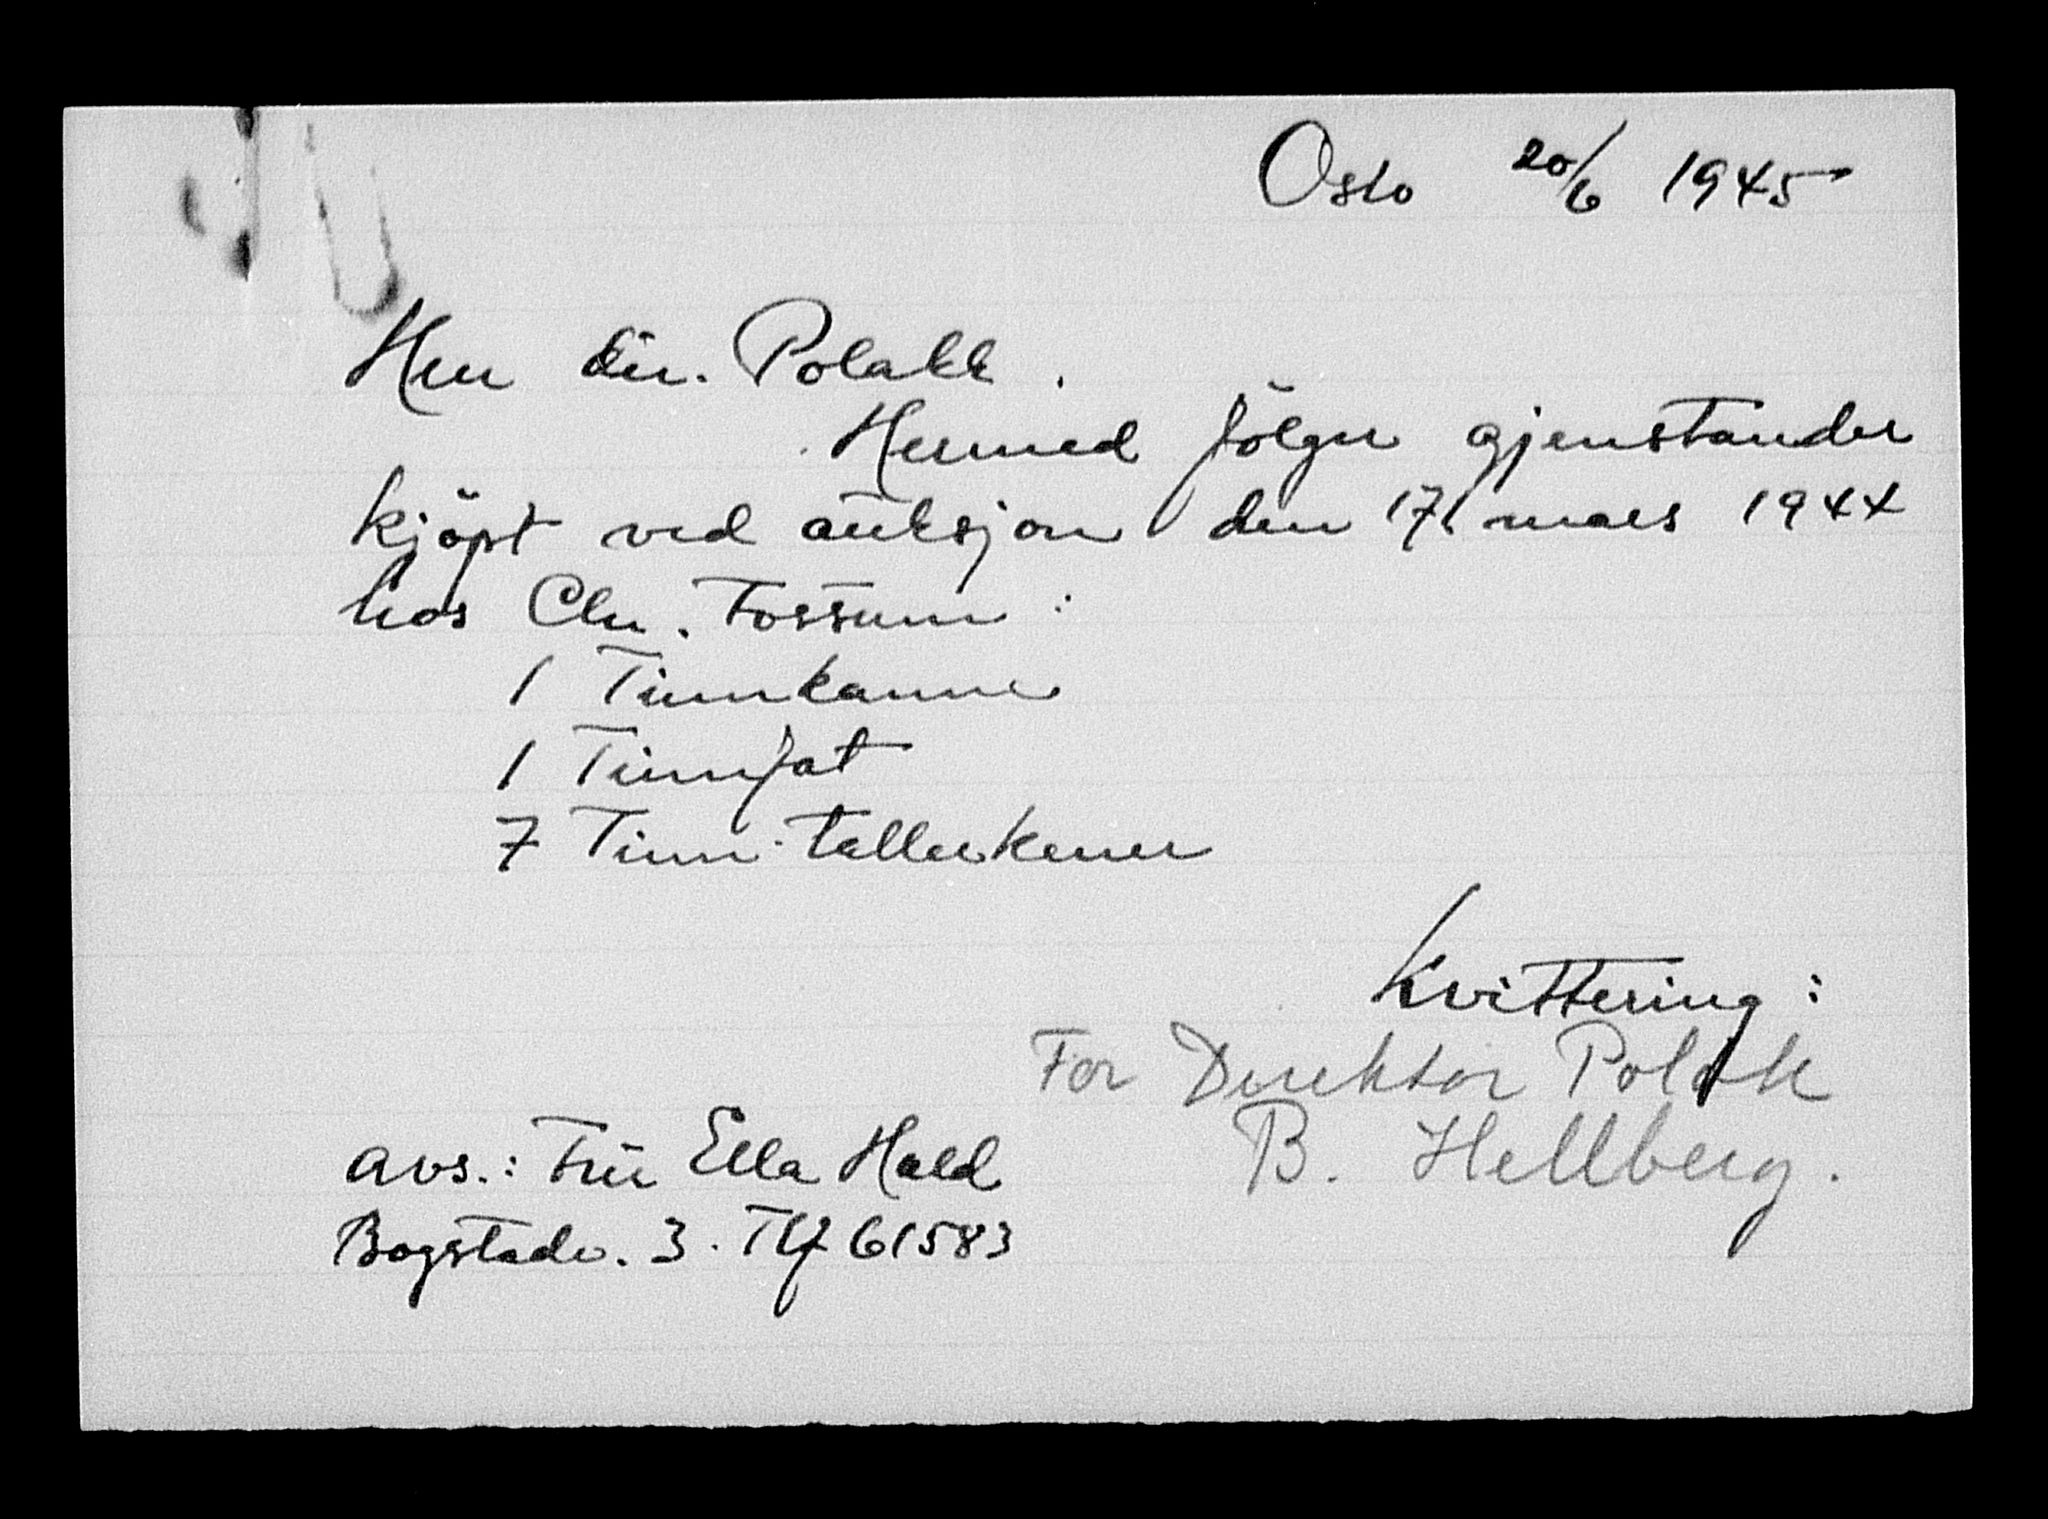 Oslo 20/6 1945
Herr dir. Polakk.
Hermed følger gjenstander
kjöpt ved auksjon den 17/ mars 1944
hos Chr. Fossum:
1 Tinnkanne
1 Tinnfat
7 Tinn-tallerkener
Kvittering:
For Direktør Polakk
B. Hellberg.
avs.: Fru Ella Hald
Bogstadv. 3. Tlf 61583